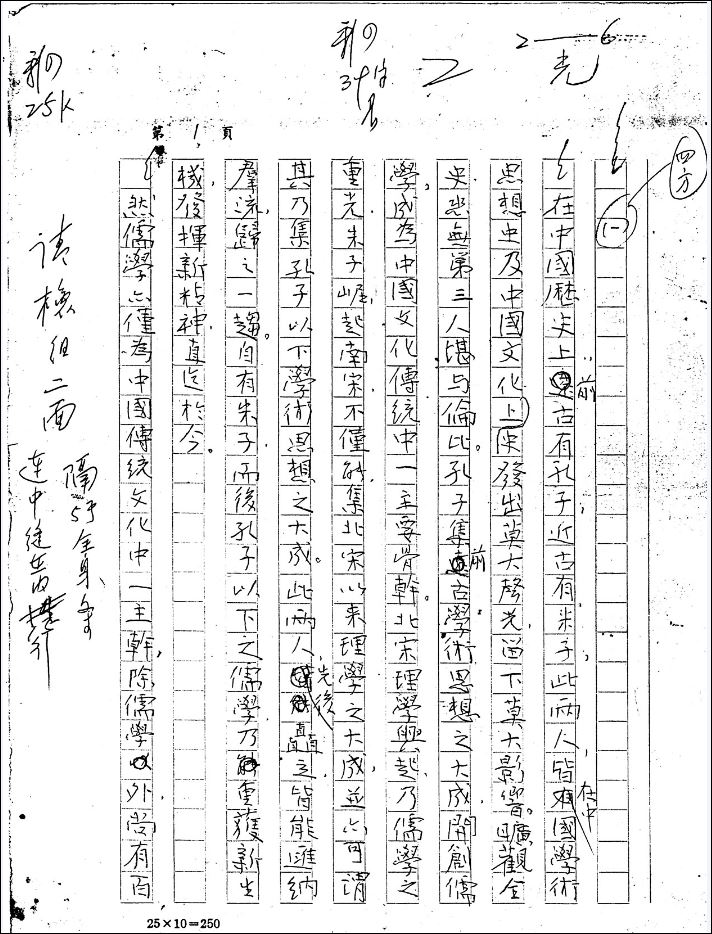 第1頁
(一)
四方
在中國歷史上,前古有孔子,近古有朱子,此兩人,皆在中國學術
思想史及中國文化史上發出莫大聲光,留下莫大影響。曠觀全
史,恐無第三人堪与倫比。孔子集前古學術思想之大成,開創儒
學,成為中國文化傳統中一主要骨幹。北宋理學興起,乃儒學之
重光。朱子崛起南宋,不僅能集北宋以來理學之大成,並亦可謂
其乃集孔子以下學術思想之大成。此兩人,先後矗立,皆能匯納
羣流,歸之一趨。自有朱子,而後孔子以下之儒學,乃重獲新生
機,發揮新精神,直迄於今。
然儒學亦僅為中國傳統文化中一主幹,除儒學外,尚有百
25×10=250